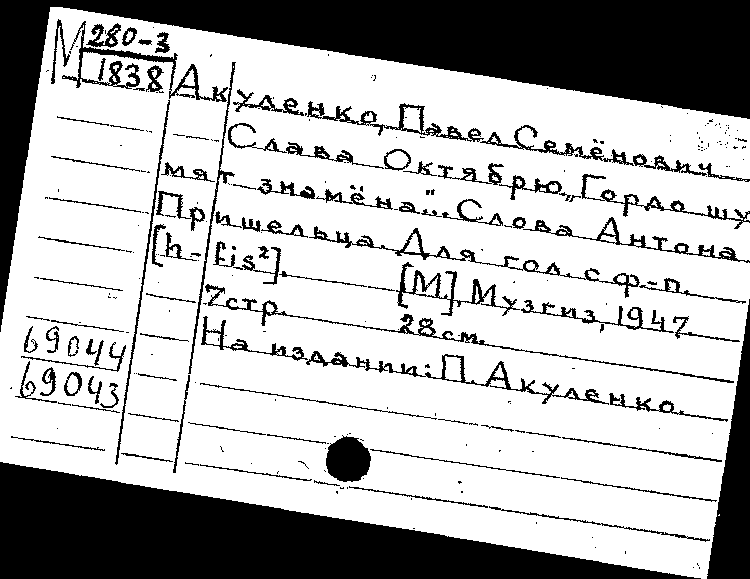 М 280-3
1838
Акуленко, Павел Семёнович
Слава Октябрю „Гордо шу
мят знамёна"... Слова Антона
Пришельца. Для гол. с ф-п.
[h - fis²]. [М.], Музгиз, 1947.
7стр. 28см.
На издании: П. Акуленко.
69044
69043